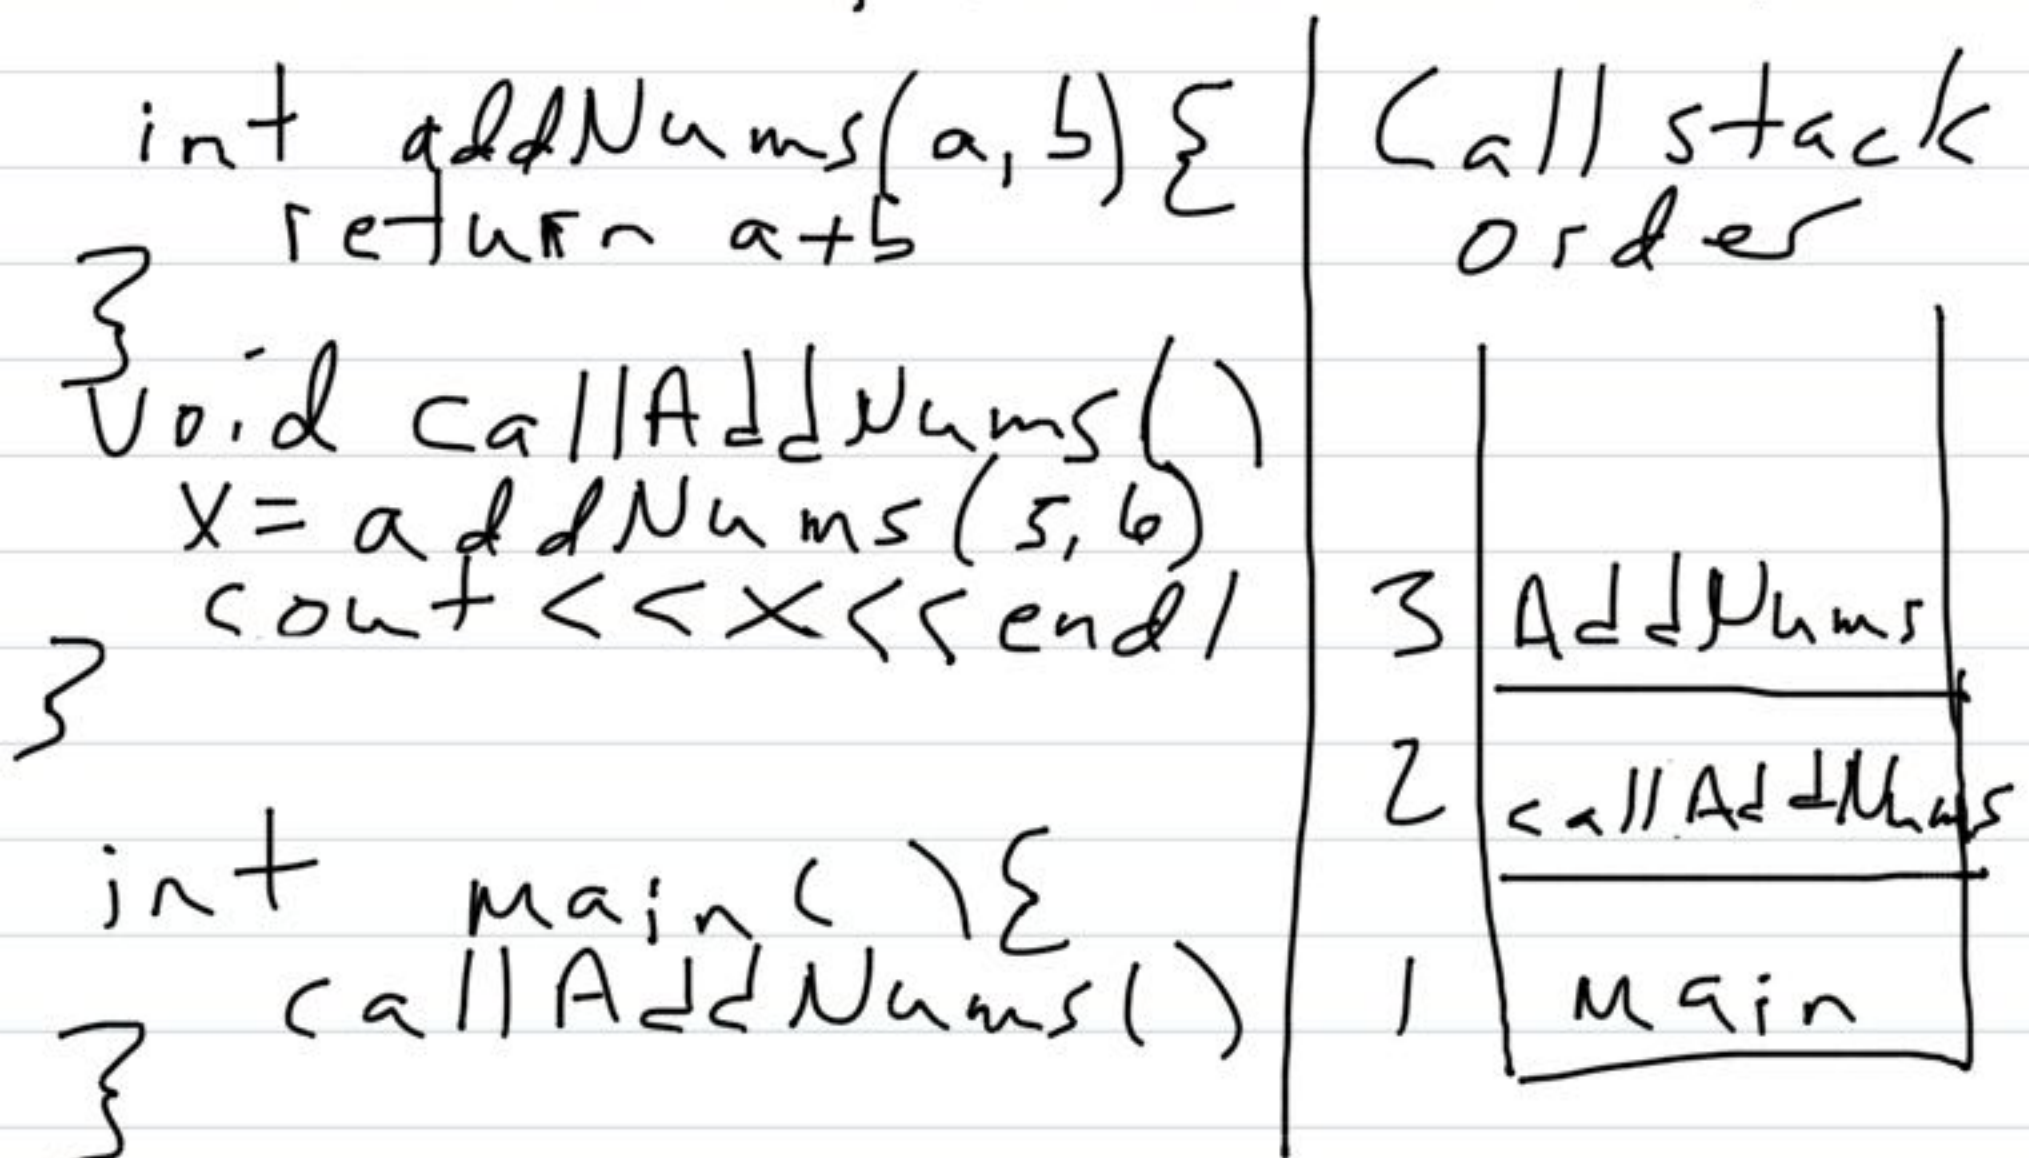 int addNums(a, b) {
return a+b
}
Void callAddNums()
x = addNums(5, 6)
cout << x << endl
}
int main() {
callAddNums()
}
Call stack
order
3 AddNums
2 callAddNums
1 main